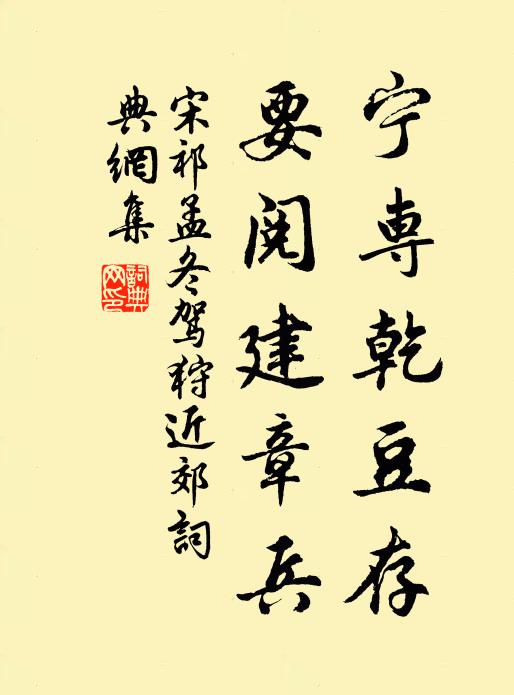 宁専乾豆存
要阅建章兵
宋祁孟冬驾狩近郊詞
典網集
詞典
网印